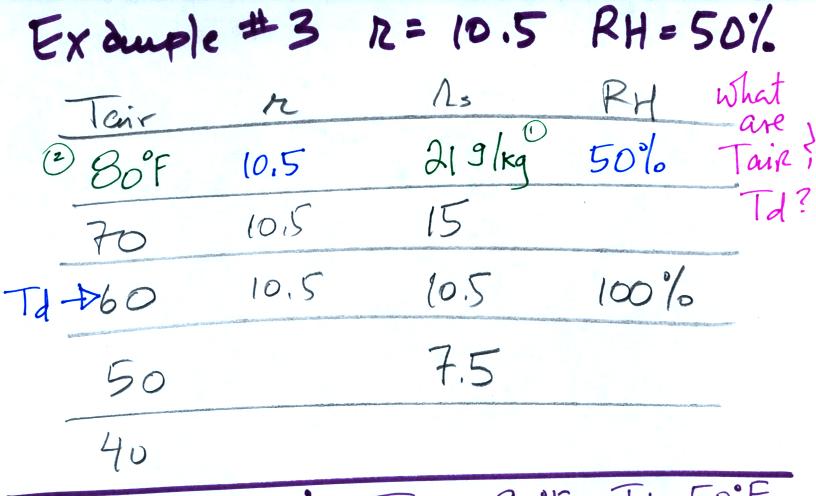 Example #3 r = 10.5 RH = 50%
Tair r rs RH
what are Tair? Td?
② 80°F 10.5 21 g/kg ① 50%
70 10.5 15
Td → 60 10.5 10.5 100%
50 7.5
40